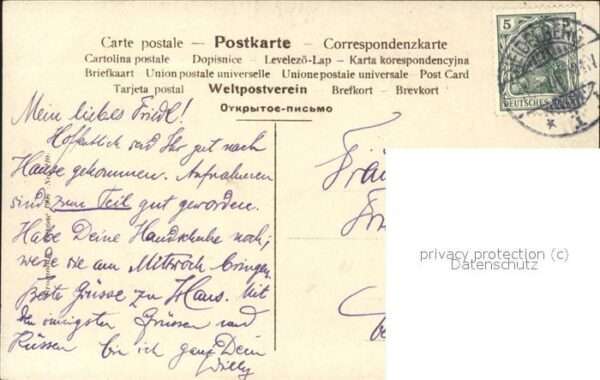 Carte postale — Postkarte — Correspondenzkarte
Cartolina postale Dopisnice — Levelező-Lap — Karta korespondencyjna
Briefkaart Union postale universelle Unione postale universale Post Card
Tarjeta postal Weltpostverein Brefkort — Brevkort
Открытое-письмо
5
HEIDELBERG
DEUTSCHES
* 1
Mein liebes Friedl!
Hoffentlich seid Ihr gut nach
Hause gekommen. Aufnahmen
sind zum Teil gut geworden.
Habe Deine Handschuhe noch;
werde sie am Mittwoch bringen.
Beste Grüsse zu Haus. Mit
den innigsten Grüssen und
Küssen bin ich ganz Dein
Willy
privacy protection (c)
Datenschutz